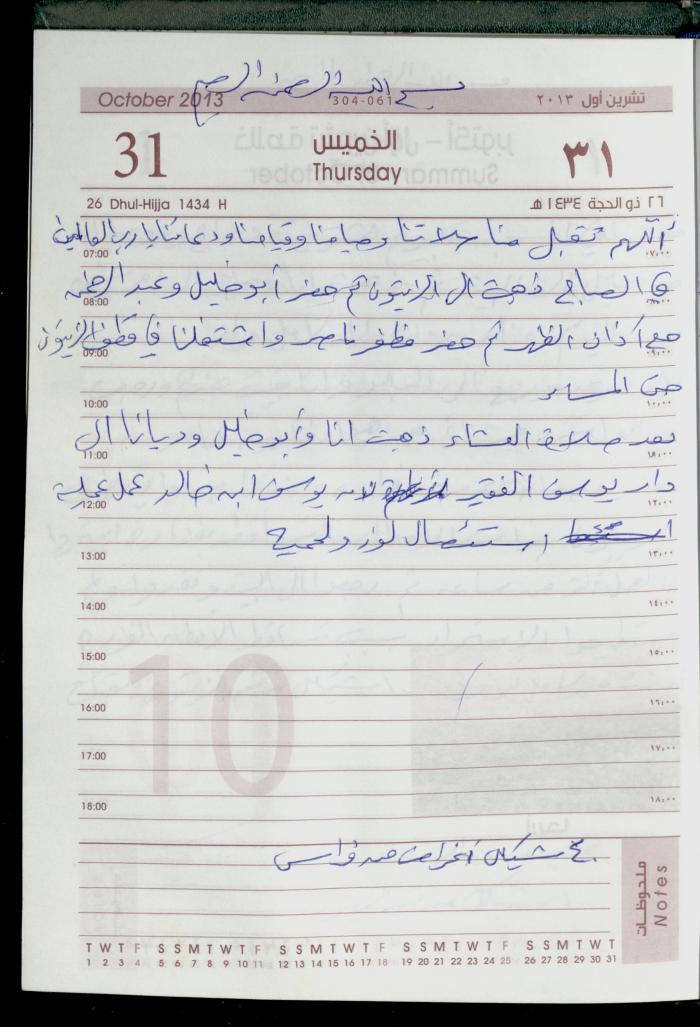 بسم الله الرحمن الرحيم
October 2013 304-061 تشرين أول ٢٠١٣
31 الخميس ٣١
Thursday
26 Dhul-Hijja 1434 H ٢٦ ذو الحجة ١٤٣٤ هـ
اللهم تقبل منا صلاتنا وصيامنا وقيامنا ودعائنا يا رب العالمين
07:00 ٠٧:٠٠
في الصباح ذهبت الى الزيتون ثم حضر أبو خليل وعبد الرحمن
08:00 ٠٨:٠٠
مع آذان الظهر ثم حضر مظفر ناصر واشتغلنا في قطف الزيتون
09:00 ٠٩:٠٠
حتى المساء
10:00 ١٠:٠٠
بعد صلاة العشاء ذهبت انا وأبو خليل وديانا الى
11:00 ١١:٠٠
دار يوسف الفقير لأن يوسف ابن خالد عمل عملية
12:00 ١٢:٠٠
استئصال لوز ولحمية
13:00 ١٣:٠٠
14:00 ١٤:٠٠
15:00 ١٥:٠٠
16:00 ١٦:٠٠
17:00 ١٧:٠٠
18:00 ١٨:٠٠
10
شيكل أغراض من فراس
ملحوظات
Notes
T W T F S S M T W T F S S M T W T F S S M T W T F S S M T W T
1 2 3 4 5 6 7 8 9 10 11 12 13 14 15 16 17 18 19 20 21 22 23 24 25 26 27 28 29 30 31